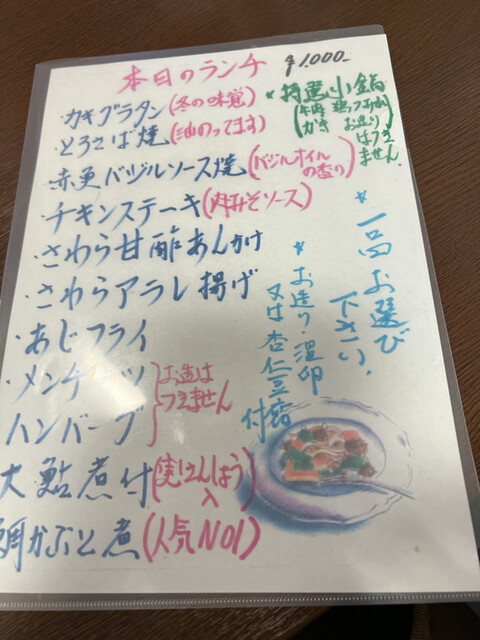 本日のランチ ¥1,000-
・カキグラタン(冬の味覚)
・とろさば焼(油のってます)
・赤魚バジルソース焼(バジルオイルの香り)
・チキンステーキ(肉みそソース)
・さわら甘酢あんかけ
・さわらアラレ揚げ
・あじフライ
・メンチ
ハンバーグ
お造は
つきません
大鮎煮付(実さんしょう入)
鯛かぶと煮(人気NO1)
*特選小鍋
かき
お造り
はつき
ません。
*一品お選び
下さい。
*お造り・温卵
又は杏仁豆腐
付